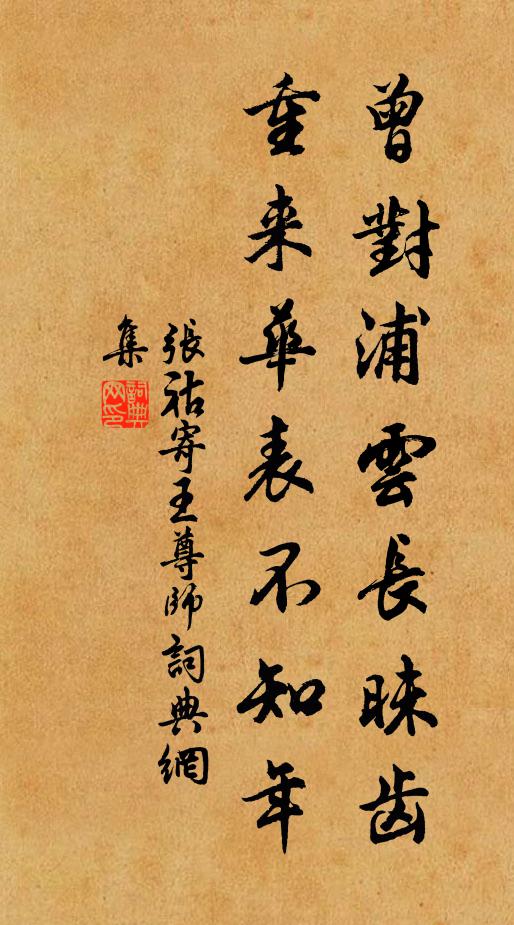 曾對浦雲長昧齿
重来華表不知年
張祜寄王尊師詞典網
集
詞典網印